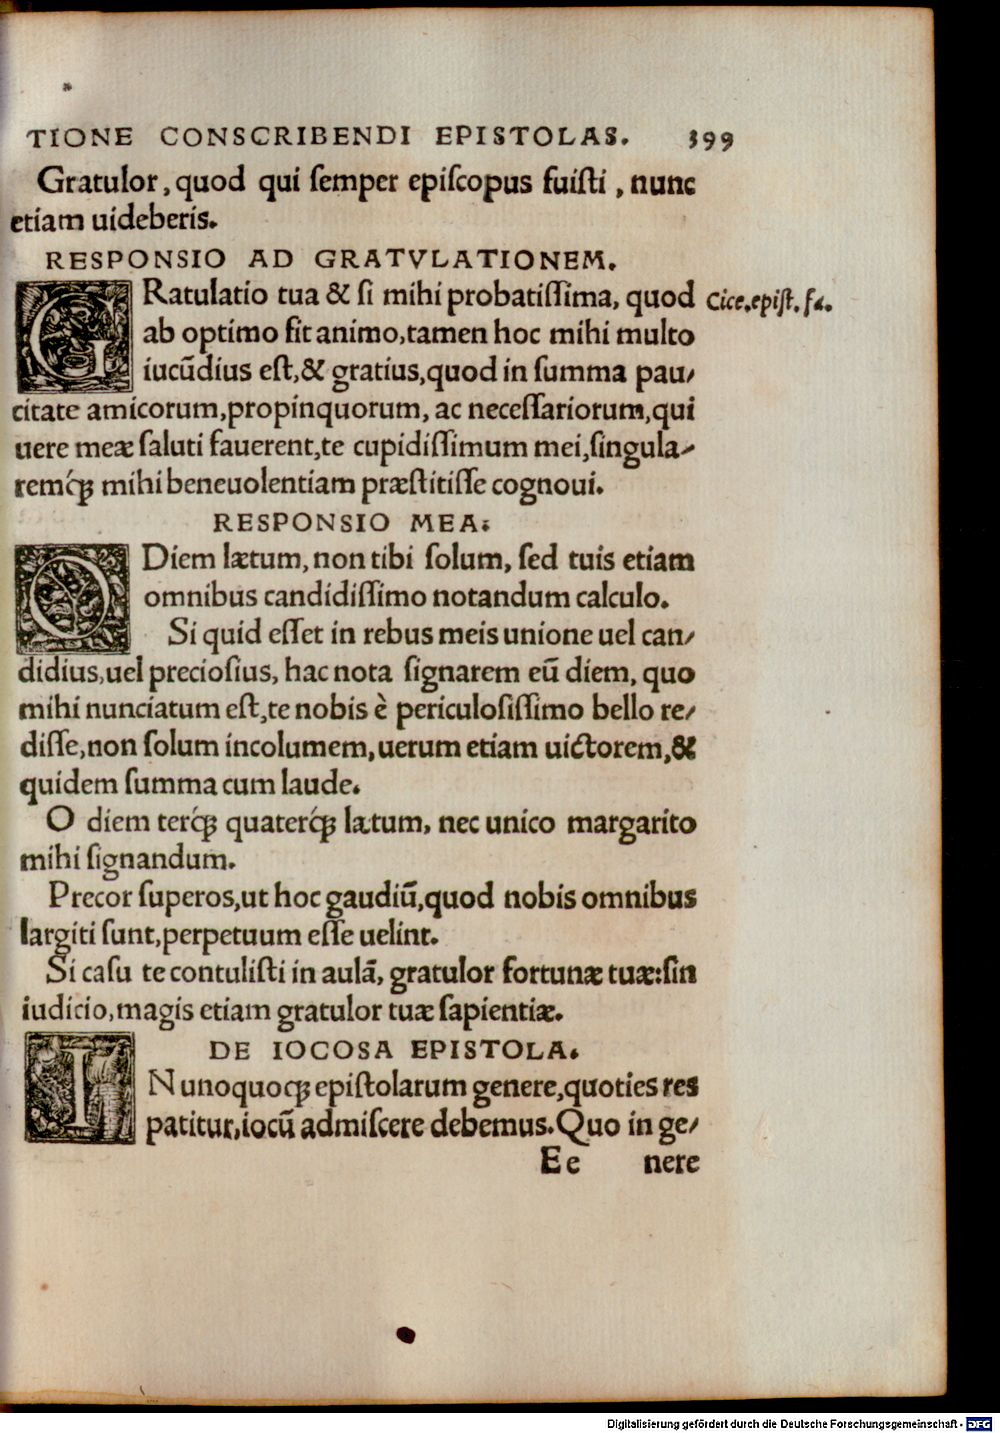 TIONE CONSCRIBENDI EPISTOLAS. 399
Gratulor, quod qui ſemper epiſcopus fuiſti, nunc
etiam uideberis.
RESPONSIO AD GRATVLATIONEM.
GRatulatio tua & ſi mihi probatiſſima, quod
Cice.epiſt.fa.
ab optimo fit animo, tamen hoc mihi multo
iucũdius eſt, & gratius, quod in ſumma pau/
citate amicorum, propinquorum, ac neceſſariorum, qui
uere meæ ſaluti fauerent, te cupidiſſimum mei, ſingula/
remq́ꝫ mihi beneuolentiam præſtitiſſe cognoui.
RESPONSIO MEA:
ODiem lætum, non tibi ſolum, ſed tuis etiam
omnibus candidiſſimo notandum calculo.
Si quid eſſet in rebus meis unione uel can/
didius, uel precioſius, hac nota ſignarem eũ diem, quo
mihi nunciatum eſt, te nobis è periculoſiſſimo bello re/
diſſe, non ſolum incolumem, uerum etiam uictorem, &
quidem ſumma cum laude.
O diem terq́ꝫ quaterq́ꝫ lætum, nec unico margarito
mihi ſignandum.
Precor ſuperos, ut hoc gaudiũ, quod nobis omnibus
largiti ſunt, perpetuum eſſe uelint.
Si caſu te contuliſti in aulã, gratulor fortunæ tuæ: ſin
iudicio, magis etiam gratulor tuæ ſapientiæ.
DE IOCOSA EPISTOLA.
IN unoquoqꝫ epiſtolarum genere, quoties res
patitur, iocũ admiſcere debemus. Quo in ge/
Ee nere
Digitalisierung gefördert durch die Deutsche Forschungsgemeinschaft - DFG